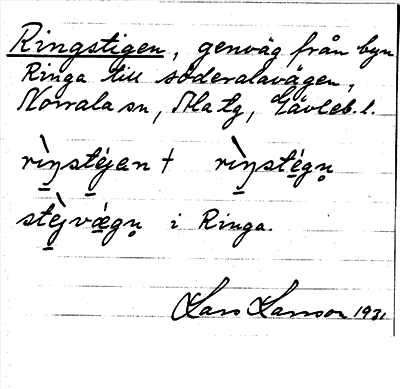 Ringstigen, genväg från byn
Ringa till söderalavägen,
Norrala sn, Ala tg, Gävleb. l.
rìŋstéjen † rìŋstégṇ
stèjvǽgṇ i Ringa.
Lars Larsson 1931